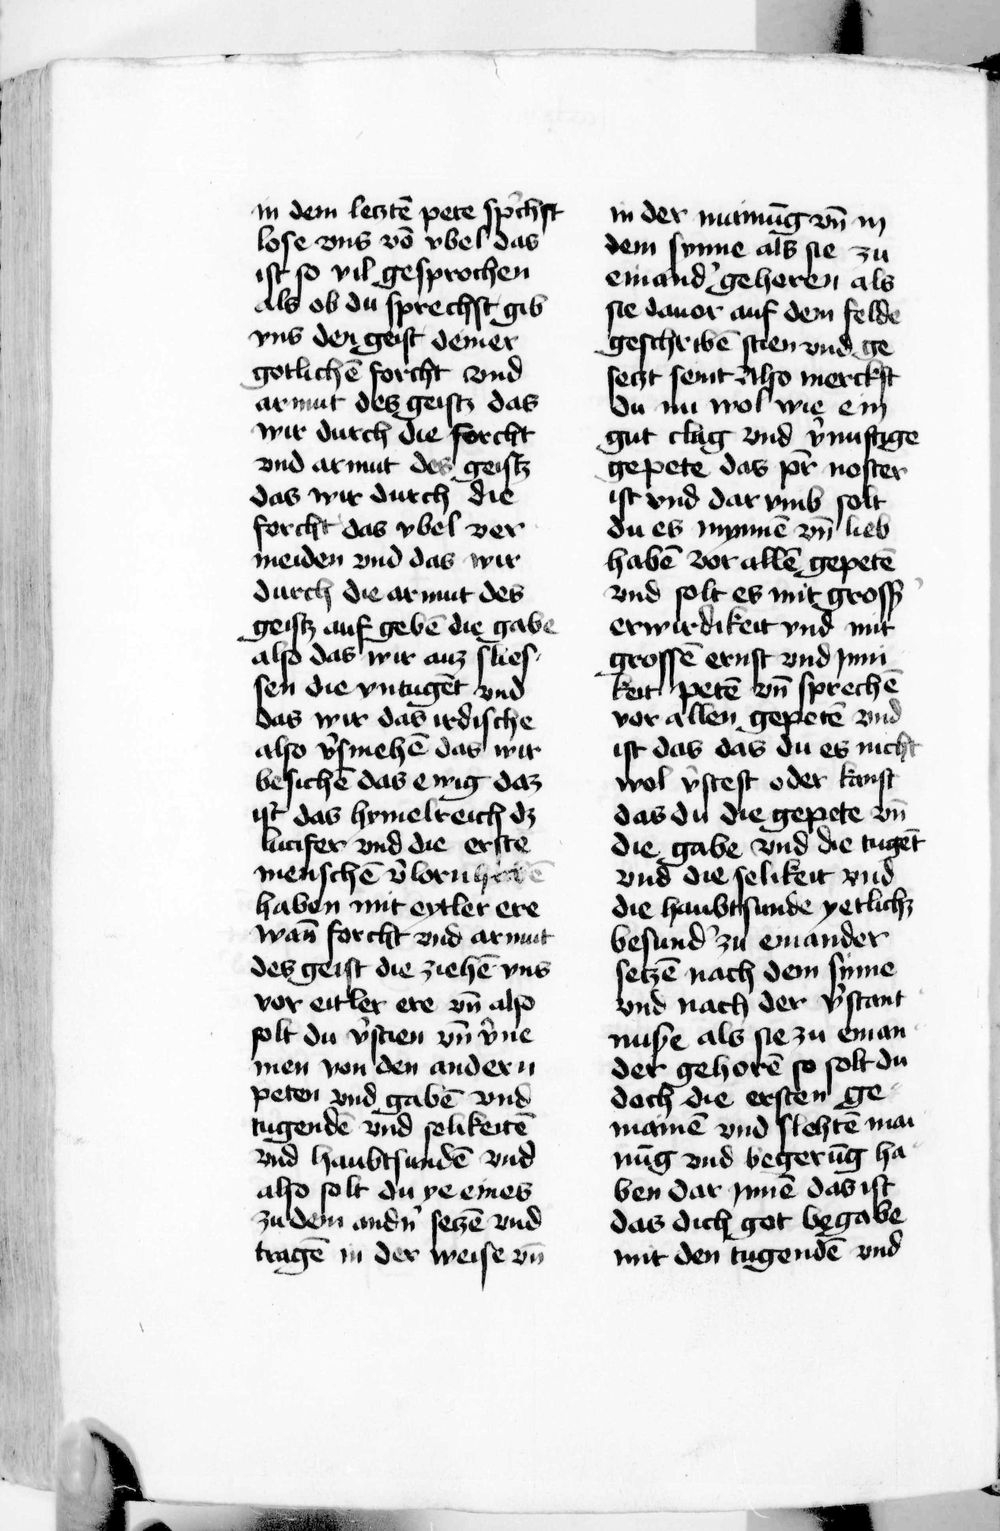 in dem letztē pete sp̉chst
lose vns võ vbel das
ist so vil gesprochen
als ob du sprechst gib
vns den geist deiner
gotlichē forcht vnd
armut des geistz das
wir durch die forcht
vnd armut des geistz
das wir durch die
forcht das vbel ver
meiden vnd das wir
durch die armut des
geistz auf gebē die gabe
also das wir auz slies
sen die vntugēt vnd
das wir das irdische
also v̉smehē das wir
besichē das ewig daz
ist das hymelreich dz
lucifer vnd die erste
menschē v̉lorn
haben mit eytler ere
wañ forcht vnd armut
des geist die ziehē vns
vor eitler ere vñ also
solt du v̉stien vñ v̉ne
men von den andern
peten vnd gabē vnd
tugendē vnd selikeitē
vnd haubtsundē vnd
also solt du ye eines
zu dem andn̉ setzē vnd
tragē in der weise vñ
in der mainūg vñ in
dem synne als sie zu
einand̉ gehoren als
sie dauor auf dem felde
geschribē stien vnd ge
setzt seint Also merckst
du nu wol wie ein
gut clug vnd v̉nuftige
gepete das pr̄ noster
ist vnd dar vmb solt
du es mynnē vñ lieb
habē vor allē gepetē
vnd solt es mit gross̉
erwirdikeit vnd mit
grossē ernst vnd jnni
keit petē vñ sprechē
vor allen gepetē vnd
ist das das du es nicht
wol v̉stest oder kanst
das du die gepete vñ
die gabe vnd die tugēt
vnd die selikeit vnd
die haubtsunde yetlichz
besund̉ zu einander
setzē nach dem synne
vnd nach der v̉stant
nusse als sie zu einan
der gehorē so solt du
doch die ersten ge
mainē vnd slehtē mai
nūg vnd begerūg ha
ben dar jnnē das ist
das dich got begabe
mit den tugendē vnd